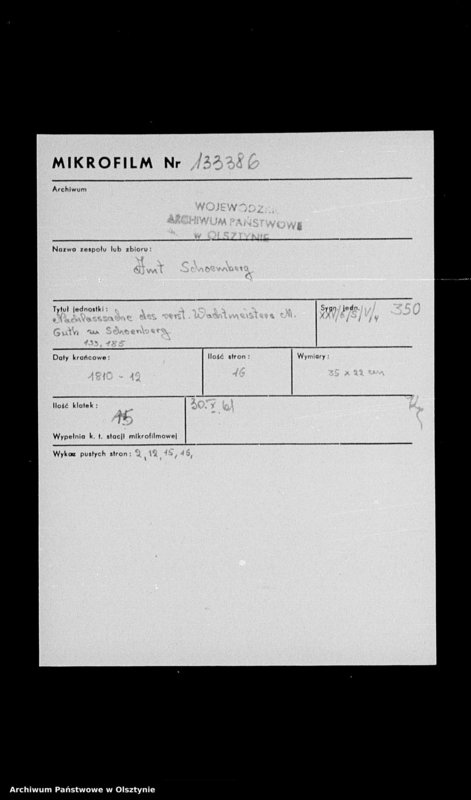 MIKROFILM Nr 133386
Archiwum
WOJEWÓDZKIE
ARCHIWUM PAŃSTWOWE
w OLSZTYNIE
Nazwa zespołu lub zbioru:
Amt Schoemberg
Tytuł jednostki:
Nachlasssache des verst. Wachtmeisters M.
Guth zu Schoenberg
133,185
Sygn. jedn.
XXVI/6/5/V/4 350
Daty krańcowe:
1810-12
Ilość stron:
16
Wymiary:
35 x 22 cm
Ilość klatek:
15
30.X.61
Wypełnia k. t. stacji mikrofilmowej
Wykaz pustych stron: 2, 12, 15, 16,
Archiwum Państwowe w Olsztynie